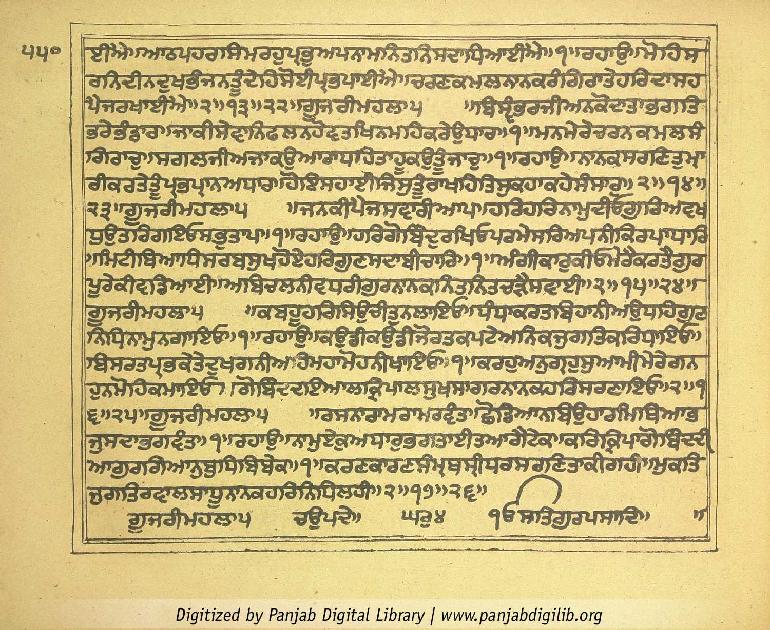 ੫੫੦
ਈਐ॥ਆਠਪਹਰਸਿਮਰਹੁਪ੍ਰਭੁਅਪਨਾਮਨਿਤਨਿਸਦਾਧਿਆਈਐ॥੧॥ਰਹਾਉ॥ਮੋਹਿਸ
ਰਨਿਦੀਨਦੁਖਭੰਜਨਤੂੰਦੇਹਿਸੋਈਪ੍ਰਭਪਾਈਐ॥ਚਰਣਕਮਲਨਾਨਕਰੰਗਿਰਾਤੇਹਰਿਦਾਸਹ
ਪੈਜਰਖਾਈਐ॥੨॥੧੩॥੨੨॥ਗੂਜਰੀਮਹਲਾ੫ ॥ਬਿਸ੍ਵੰਭਰਜੀਅਨਕੋਦਾਤਾਭਗਤਿ
ਭਰੇਭੰਡਾਰ॥ਜਾਕੀਸੇਵਾਨਿਫਲਨਹੋਵਤਖਿਨਮਹਿਕਰੇਉਧਾਰ॥੧॥ਮਨਮੇਰੇਚਰਨਕਮਲਸੰ
ਗਿਰਾਚੁ॥ਸਗਲਜੀਅਜਾਕਉਆਰਾਧਹਿਤਾਹੂਕਉਤੂੰਜਾਚੁ॥੧॥ਰਹਾਉ॥ਨਾਨਕਸਰਣਿਤੁਮਾ
ਰੀਕਰਤੇਤੂੰਪ੍ਰਭਪ੍ਰਾਨਅਧਾਰ॥ਹੋਇਸਹਾਈਜਿਸੁਤੂੰਰਾਖਹਿਤਿਸੁਕਹਾਕਰੇਸੰਸਾਰੁ॥੨॥੧੪॥
੨੩॥ਗੂਜਰੀਮਹਲਾ੫ ॥ਜਨਕੀਪੈਜਸਵਾਰੀਆਪ॥ਹਰਿਹਰਿਨਾਮੁਦੀਓਗੁਰਿਅਵਖ
ਧੁਉਤਰਿਗਇਓਸਭੁਤਾਪ॥੧॥ਰਹਾਉ॥ਹਰਿਗੋਬਿੰਦੁਰਖਿਓਪਰਮੇਸਰਿਅਪਨੀਕਿਰਪਾਧਾਰਿ
॥ਮਿਟੀਬਿਆਧਿਸਰਬਸੁਖਹੋਏਹਰਿਗੁਣਸਦਾਬੀਚਾਰਿ॥੧॥ਅੰਗੀਕਾਰੁਕੀਓਮੇਰੈਕਰਤੈਗੁਰ
ਪੂਰੇਕੀਵਡਿਆਈ॥ਅਬਿਚਲਨੀਵਧਰੀਗੁਰਨਾਨਕਨਿਤਨਿਤਚੜੈਸਵਾਈ॥੨॥੧੫॥੨੪॥
ਗੂਜਰੀਮਹਲਾ੫ ॥ਕਬਹੂਹਰਿਸਿਉਚੀਤੁਨਲਾਇਓ॥ਧੰਧਾਕਰਤਬਿਹਾਨੀਅਉਧਹਿਗੁਣ
ਨਿਧਿਨਾਮੁਨਗਾਇਓ॥੧॥ਰਹਾਉ॥ਕਉਡੀਕਉਡੀਜੋਰਤਕਪਟੇਅਨਿਕਜੁਗਤਿਕਰਿਧਾਇਓ॥
ਬਿਸਰਤਪ੍ਰਭਕੇਤੇਦੁਖਗਨੀਅਹਿਮਹਾਮੋਹਨੀਖਾਇਓ॥੧॥ਕਰਹੁਅਨੁਗ੍ਰਹੁਸੁਆਮੀਮੇਰੇਗਨ
ਹੁਨਮੋਹਿਕਮਾਇਓ॥ਗੋਬਿੰਦਦਇਆਲਕ੍ਰਿਪਾਲਸੁਖਸਾਗਰਨਾਨਕਹਰਿਸਰਣਾਇਓ॥੨॥੧
੬॥੨੫॥ਗੂਜਰੀਮਹਲਾ੫ ॥ਰਸਨਾਰਾਮਰਾਮਰਵੰਤ॥ਛੋਡਿਆਨਬਿਉਹਾਰਮਿਥਿਆਭ
ਜੁਸਦਾਭਗਵੰਤ॥੧॥ਰਹਾਉ॥ਨਾਮੁਏਕੁਅਧਾਰੁਭਗਤਾਈਤਆਗੈਟੇਕ॥ਕਰਿਕ੍ਰਿਪਾਗੋਬਿੰਦਦੀ
ਆਗੁਰਗਿਆਨੁਬੁਧਿਬਿਬੇਕ॥੧॥ਕਰਣਕਾਰਣਸੰਮ੍ਰਥਸ੍ਰੀਧਰਸਰਣਿਤਾਕੀਗਹੀ॥ਮੁਕਤਿ
ਜੁਗਤਿਰਵਾਲਸਾਧੂਨਾਨਕਹਰਿਨਿਧਿਲਹੀ॥੨॥੧੭॥੨੬॥
ਗੂਜਰੀਮਹਲਾ੫ ਚਉਪਦੇ॥ ਘਰੁ੪ ੴਸਤਿਗੁਰਪ੍ਰਸਾਦਿ॥ ॥
Digitized by Panjab Digital Library | www.panjabdigilib.org